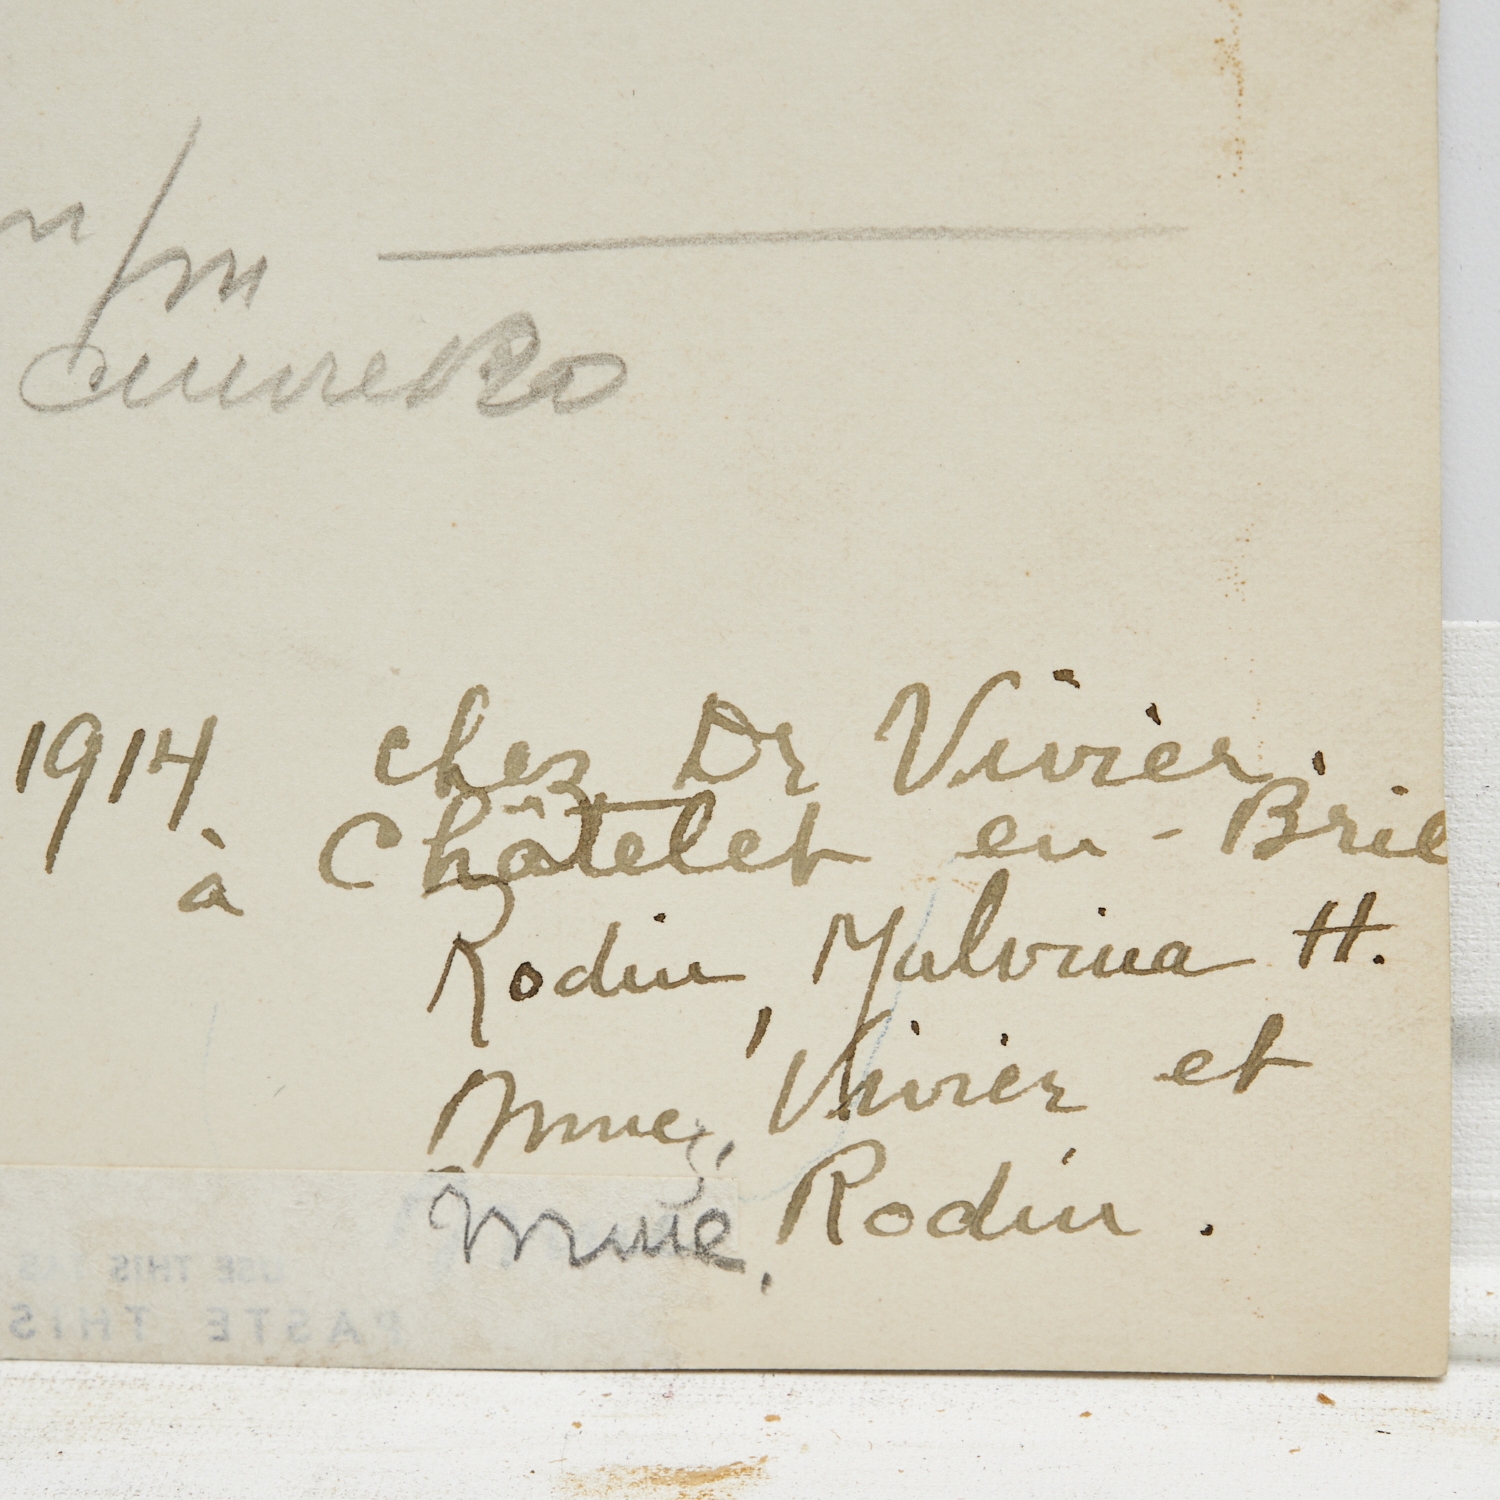 1914 chez Dr Vivier.
à Châtelet en-Brie
Rodin, Malvina H.
Mme, Vivier et
Mme, Rodin.
PASTE THIS